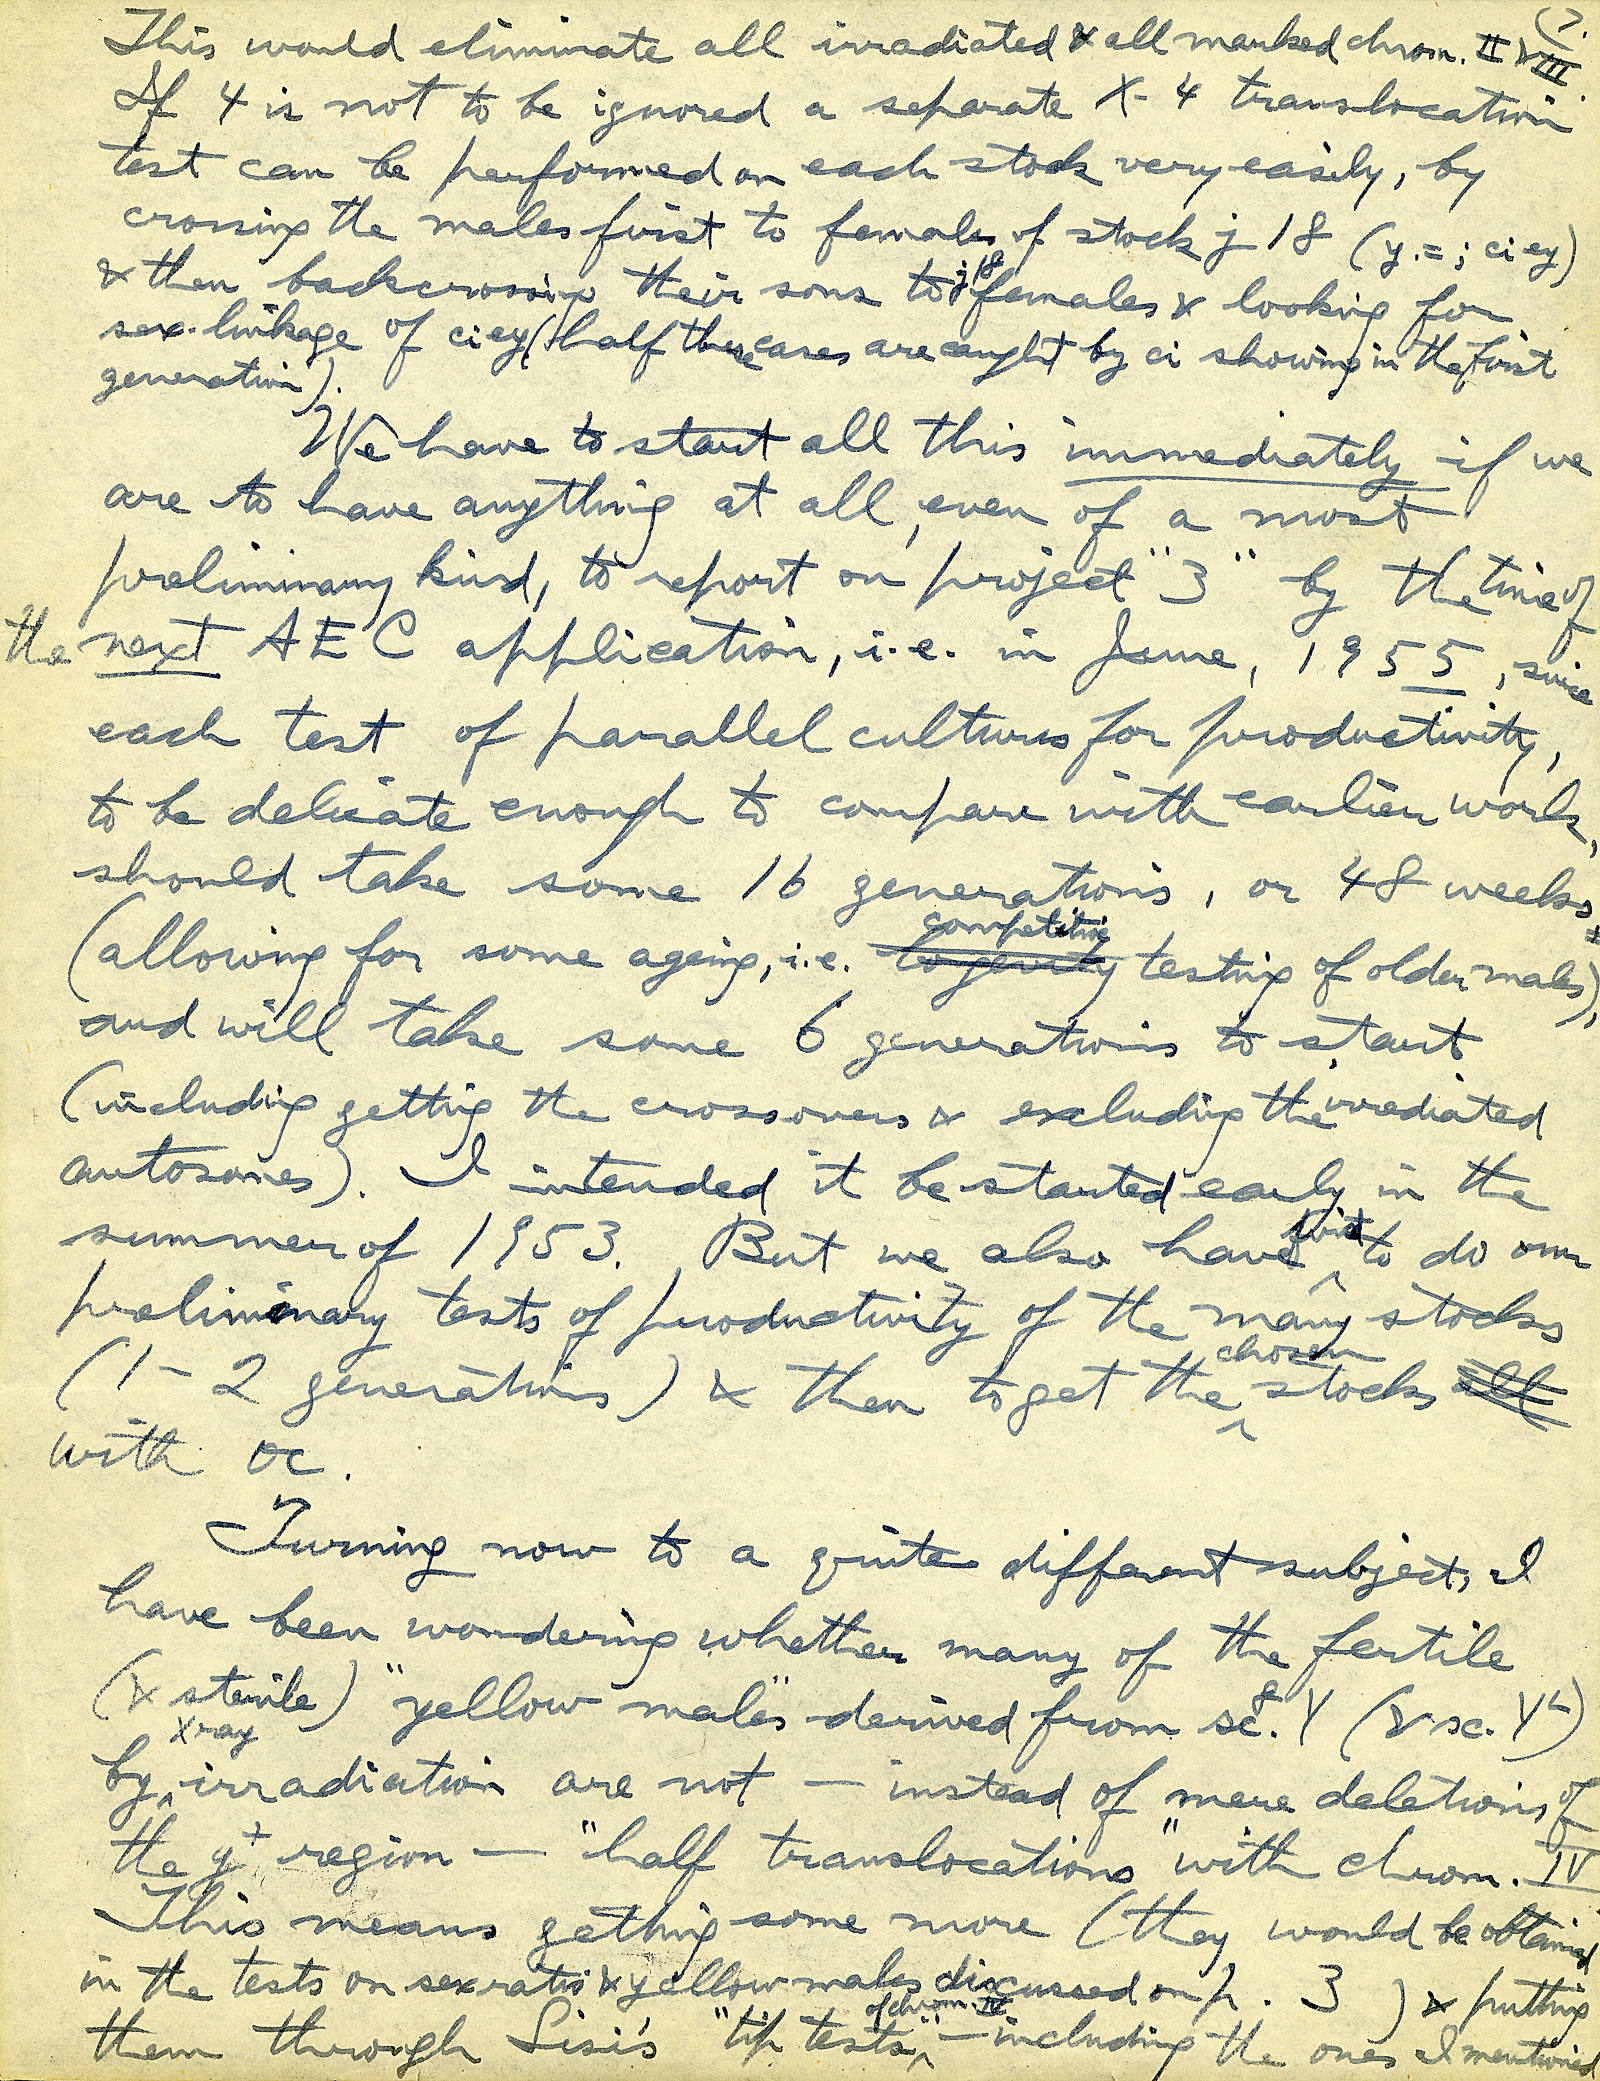 (7.
This would eliminate all irradiated & all marked chrom. II & III.
If 4 is not to be ignored a separate X-4 translocation
test can be performed on each stock very easily, by
crossing the males first to females of stock j 18 (y.=; ci ey)
& then backcrossing their sons to j18 females & looking for
sex-linkage of ci ey (half these cases are caught by ci showing in the first
generation).
We have to start all this immediately if we
are to have anything at all, even of a most
preliminary kind, to report on project "3" by the time of
the next AEC application, i.e. in June, 1955, since
each test of parallel cultures for productivity,
to be delicate enough to compare with earlier work,
should take some 16 generations, or 48 weeks
(allowing for some ageing, i.e. longevity competitive testing of older males),
and will take some 6 generations to start
(including getting the crossovers & excluding the irradiated
autosomes). I intended it be started early in the
summer of 1953. But we also have first to do our
preliminary tests of productivity of the many stocks
(1-2 generations) & then to get the chosen stocks all
with oc.
Turning now to a quite different subject, I
have been wondering whether many of the fertile
(& sterile) "yellow males" derived from sc8.Y (& sc.YL)
by xray irradiation are not — instead of mere deletions of
the y+ region — "half translocations" with chrom. IV
This means getting some more (they would be obtained
in the tests on sex ratio & yellow males discussed on p. 3) & putting
them through Sisi's "tip tests" of chrom. IV — including the ones I mentioned